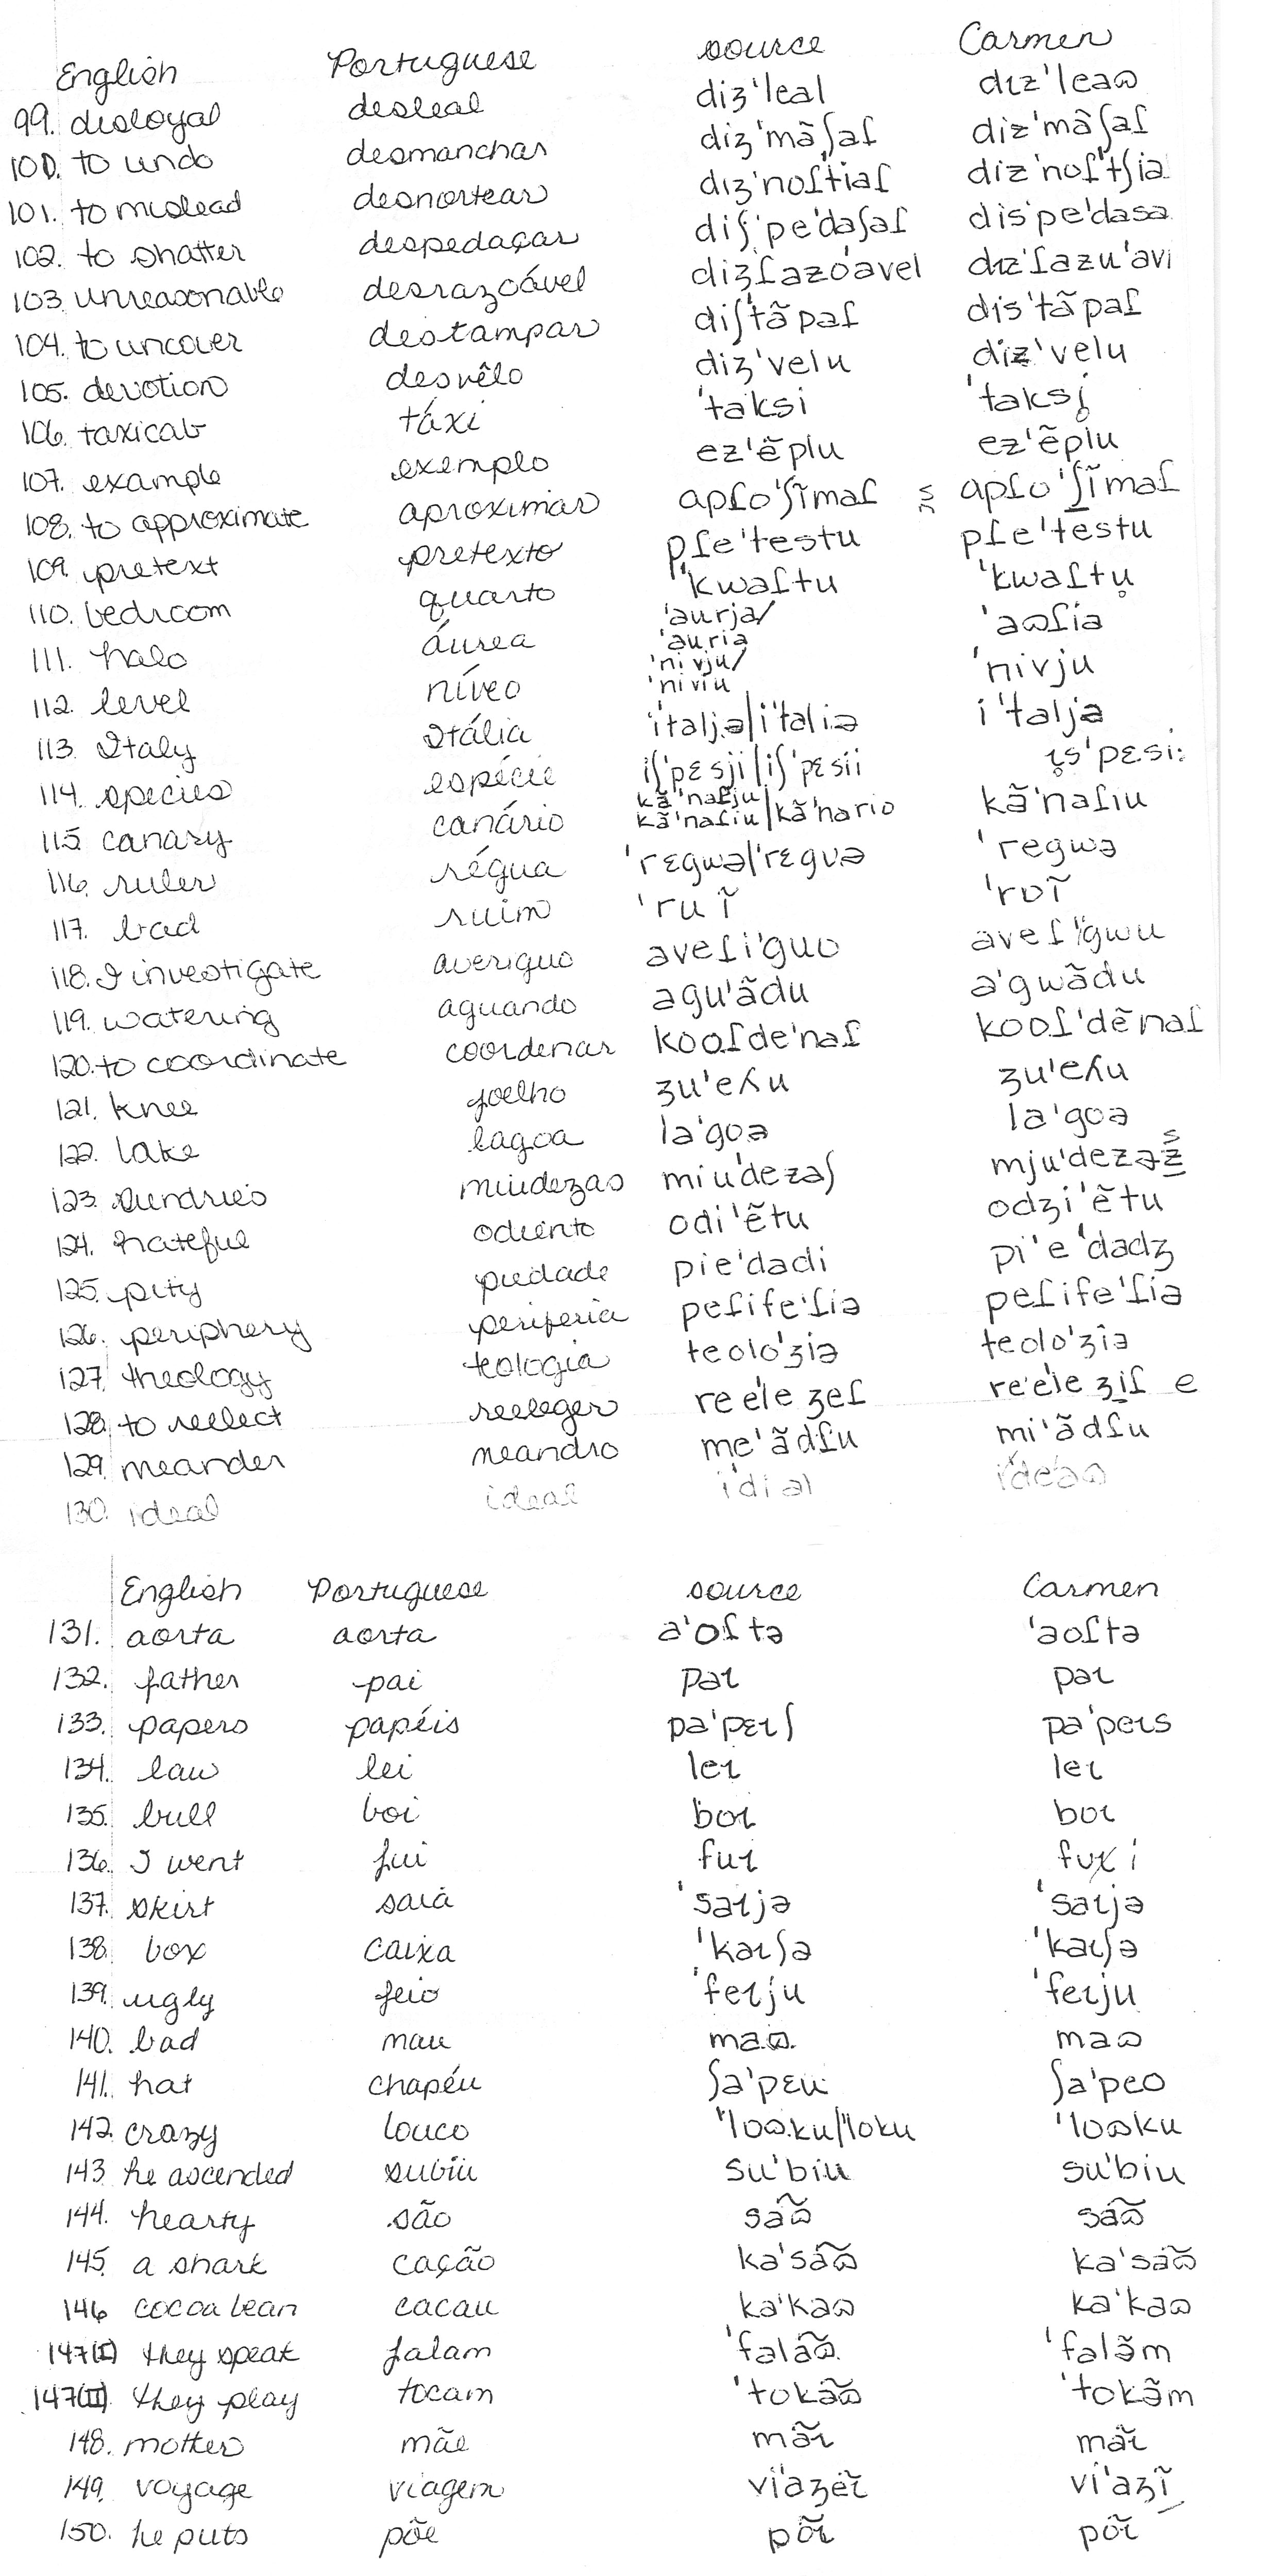 English Portuguese source Carmen
99. disloyal desleal diʒ'leal dɪz'leaɷ
100. to undo desmanchar diʒ'mãʃaɾ diz'mãʃaɾ
101. to mislead desnortear dɪʒ'noɾtiaɾ diz'noɾ'tʃia
102. to shatter despedaçar diʃ'pe'daʃaɾ dis'pe'dasa
103. unreasonable desrazoável diʒɾazo'avel dɪz'ɾazu'avi
104. to uncover destampar diʃ'tãpaɾ dis'tãpaɾ
105. devotion desvêlo diʒ'velu diz'velu
106. taxicab táxi 'taksi 'taksi̥
107. example exemplo ez'ẽplu ez'ẽplu
108. to approximate aproximar apɾo'ʃĩmaɾ apɾo'ʃĩmaɾ
109. pretext pretexto pɾe'testu pɾe'testu
110. bedroom quarto 'kwaɾtu 'kwaɾtu̥
111. halo áurea 'aurja/'auria 'aɷɾia
112. level níveo 'nivju/'niviu 'nivju
113. Italy Itália i'taljə/i'taliə i'taljə
114. species espécie iʃ'pɛsji/iʃ'pɛsii ɪs'pɛsi:
115. canary canário kã'naɾju kã'naɾiu/kã'nario kã'naɾiu
116. ruler régua 'rɛgwə/'rɛguə 'regwə
117. bad ruim 'ruĩ 'ruĩ
118. I investigate averiguo aveɾi'guo aveɾ'igwu
119. watering aguando agu'ãdu a'gwãdu
120. to coordinate coordenar kooɾde'naɾ kooɾ'dẽnaɾ
121. knee joelho ʒu'eʎu ʒu'eʎu
122. lake lagoa la'goə la'goə
123. sundries miudezas miu'dezaʃ mju'dezəz s
124. hateful odiento odi'ẽtu odʒi'ẽtu
125. pity piedade pie'dadi pi'e'dadʒ
126. periphery periferia peɾife'ɾiə peɾife'ɾiə
127. theology teologia teolo'ʒiə teolo'ʒiə
128. to reelect reeleger reele'ʒeɾ reele'ʒiɾ e
129. meander meandro me'ãdɾu mi'ãdɾu
130. ideal ideal i'dial i'deaɷ
English Portuguese source Carmen
131. aorta aorta a'oɾtə 'aoɾtə
132. father pai paɪ paɪ
133. papers papéis pa'pɛɪʃ pa'peɪs
134. law lei leɪ leɪ
135. bull boi boɪ boɪ
136. I went fui fuɪ fui
137. skirt saia 'saɪjə 'saɪjə
138. box caixa 'kaɪʃə 'kaɪʃə
139. ugly feio 'feɪju 'feɪju
140. bad mau maɷ maɷ
141. hat chapéu ʃa'pɛu ʃa'peo
142. crazy louco 'loɷku/'loku 'loɷku
143. he ascended subiu su'biu su'biu
144. hearty são sãɷ̃ sãɷ̃
145. a shark cação ka'sãɷ̃ ka'sãɷ̃
146 cocoa bean cacau ka'kaɷ ka'kaɷ
147(I) they speak falam 'falãɷ̃ 'falə̃m
147(II) they play tocam 'tokãɷ̃ 'tokãm
148. mother mãe mãɪ̃ mãɪ̃
149. voyage viagem vi'aʒẽɪ̃ vi'aʒĩ
150. he puts põe põɪ̃ põɪ̃